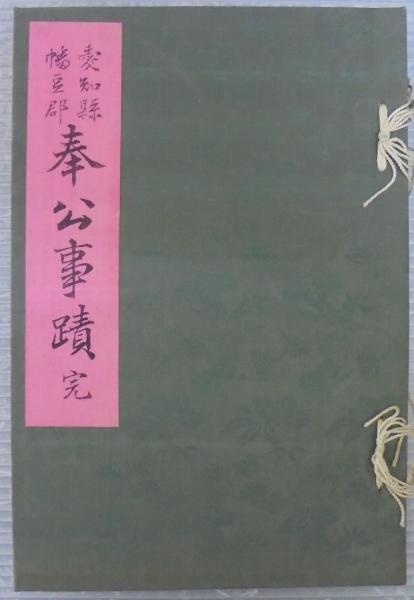 愛知縣
幡豆郡
奉公事蹟 完